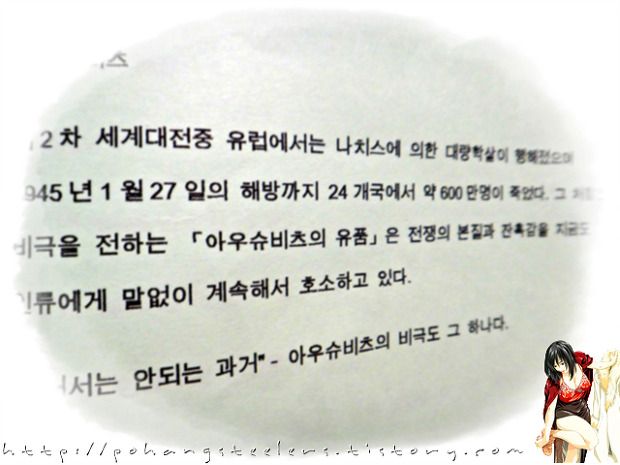 2차 세계대전중 유럽에서는 나치스에 의한 대량학살이 행해졌으며
945년 1월 27일의 해방까지 24개국에서 약 600만명이 죽었다. 그
비극을 전하는 「아우슈비츠의 유품」은 전쟁의 본질과 잔혹감을 지금도
인류에게 말없이 계속해서 호소하고 있다.
서는 안되는 과거" - 아우슈비츠의 비극도 그 하나다.
http://pohangsteelers.tistory.com